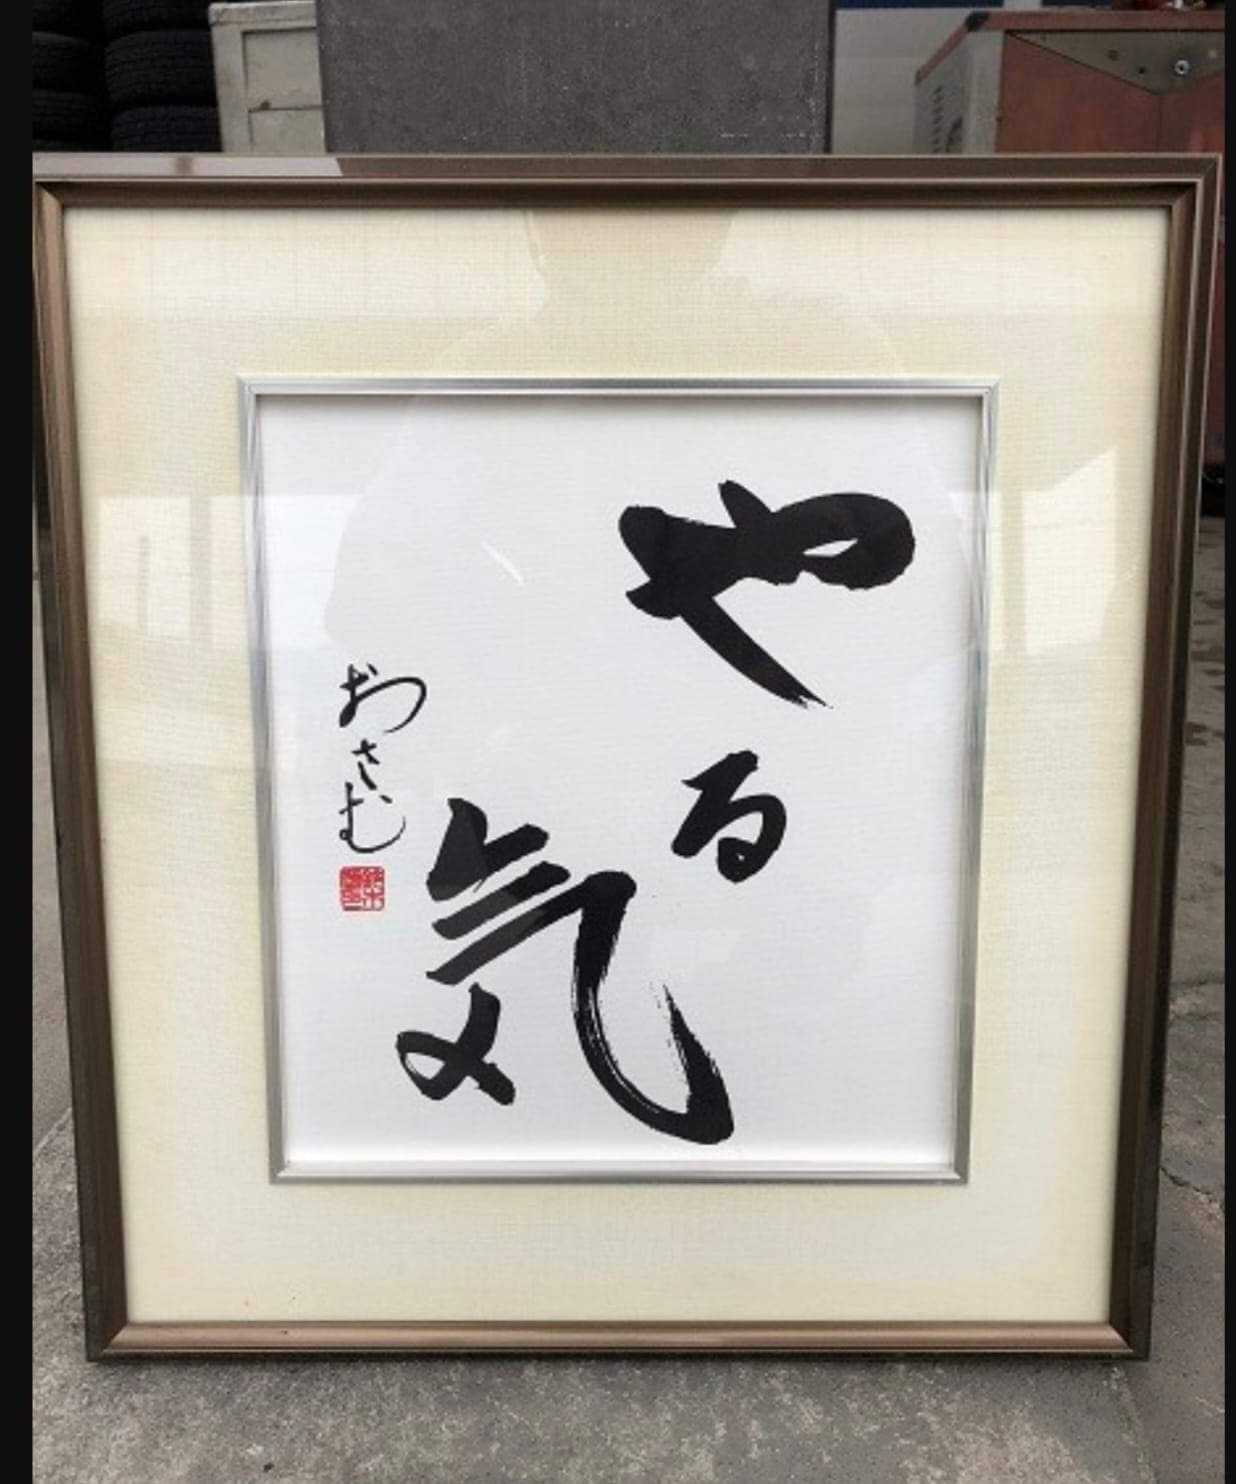 やる気
おさむ